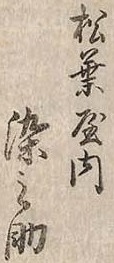 松葉屋内
染之助